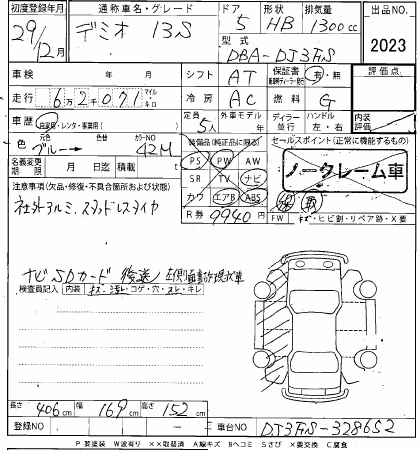 初度登録年月 通称車名・グレード ドア 形状 排気量 出品NO.
29/12月 デミオ 13S 5 HB 1300cc 2023
型式 DBA-DJ3FS
車検 年 月 シフト AT 保証書 有・無 評価点
走行 6万2千071 マイル キロ 冷房 AC 燃料 G
車歴 自家用・レンタ・事業用( ) 定員 5人 外車モデル 年 ディーラー 並行 ハンドル 左・右 内装評価
色 元色 ブルー→ カラーNO 42M 装備品(純正品に限る) セールスポイント(正常に機能するもの)
名義変更期限 月 日 積載 t PS PW AW ノークレーム車
注意事項(欠品・修復・不具合箇所および状態) SR TV ナビ
社外アルミ、スタッドレスタイヤ カワ エアB ABS
R券 9940円 FW キズ・ヒビ割・リペア跡・X要
ナビSDカード後送 左側面事故現状車
検査員記入 内装 キズ・汚レ・コゲ・穴・スレ・キレ
長さ 406cm 幅 169cm 高さ 152cm
登録NO ー 車台NO DJ3FS-328652
P要塗装 W波有り ××取替済 A線キズ Bヘコミ Sさび ×要交換 C腐食